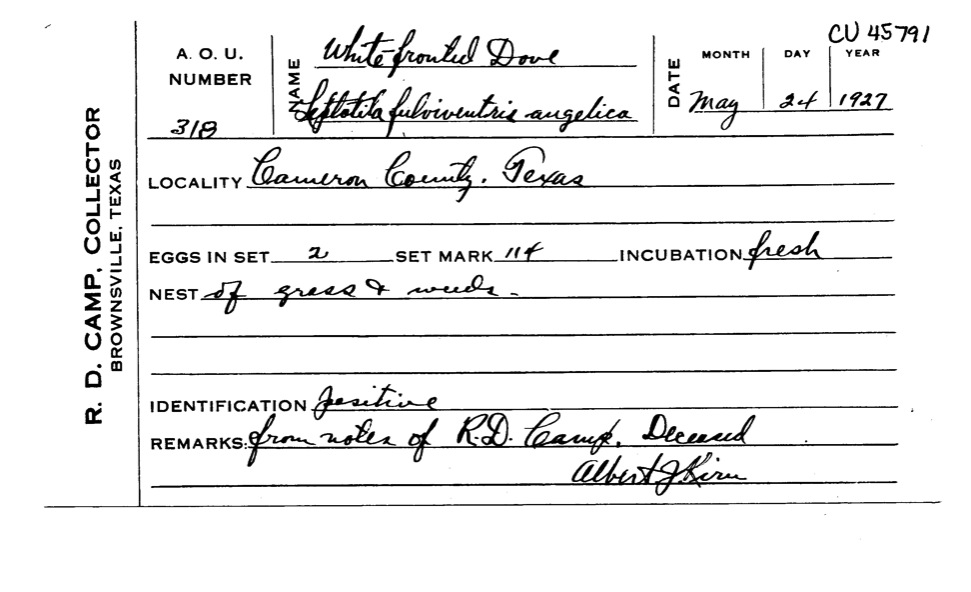 CU 45791
A. O. U. NUMBER 318
NAME White-fronted Dove
Leptotila fulviventris angelica
DATE MONTH May DAY 24 YEAR 1927
R. D. CAMP, COLLECTOR
BROWNSVILLE, TEXAS
LOCALITY Cameron County. Texas
EGGS IN SET 2 SET MARK 114 INCUBATION fresh
NEST of grass & weeds.
IDENTIFICATION positive
REMARKS: from notes of R.D. Camp. Deceased
Albert J Kirn